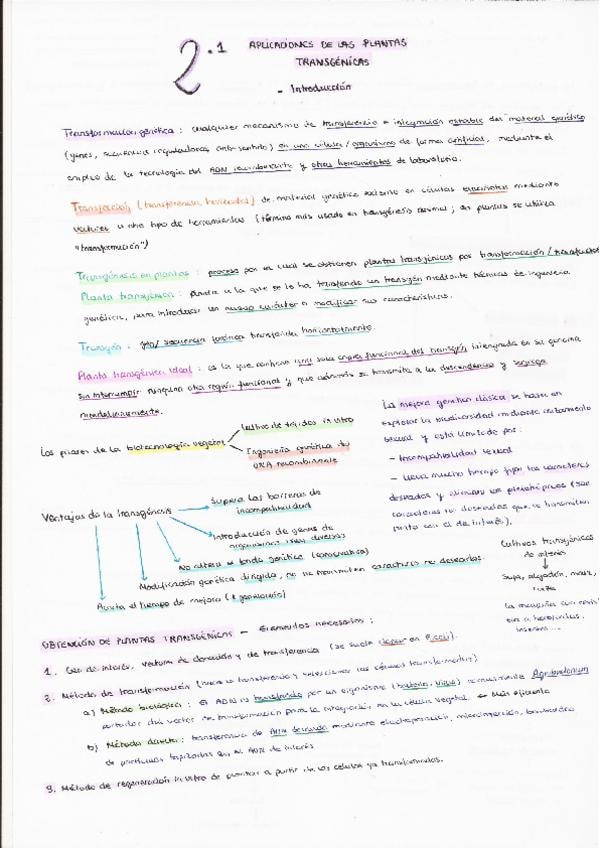 2.1 APLICACIONES DE LAS PLANTAS
TRANSGÉNICAS
- Introducción
Transformación genética : cualquier mecanismo de transferencia e integración estable del material genético
(genes, secuencias reguladoras, anti-sentido) en una célula/organismo de forma artificial, mediante el
empleo de la tecnología del ADN recombinante y otras herramientas de laboratorio.
Transfección (transferencia horizontal) de material genético externo en células mediante
vectores u otro tipo de herramientas (término más usado en transgénesis animal; en plantas se utiliza
"transformación")
Transgénesis en plantas : proceso por el cual se obtienen plantas transgénicas por transformación/transfección
Planta transgénica : planta a la que se le ha transferido un transgén mediante técnicas de ingeniería
genética, para introducir un nuevo carácter o modificar sus características.
Transgén : gen/ secuencia génica transferida horizontalmente.
Planta transgénica ideal : es la que contiene una sola copia funcional del transgén integrada en su genoma
sin interrumpir ninguna otra región funcional y que además se transmite a la descendencia y segrega
mendelianamente.
Los pilares de la biotecnología vegetal
Cultivo de tejidos in vitro
Ingeniería genética de
DNA recombinante
La mejora genética clásica se basa en
explotar la biodiversidad mediante cruzamiento
sexual y está limitada por :
- Incompatibilidad sexual
- Lleva mucho tiempo fijar los caracteres
deseados y eliminar los pleiotrópicos (son
caracteres no deseados que se transmiten
junto con el de interés).
Ventajas de la transgénesis
Supera las barreras de
incompatibilidad
Introducción de genes de
organismos muy diversos
No altera el fondo genético (conservativa)
Modificación genética dirigida, no se transmiten caracteres no deseados.
Acorta el tiempo de mejora (1 generación)
Cultivos transgénicos
de interés
Soja, algodón, maíz,
colza
La mayoría con resis
cia a herbicidas,
insectos...
OBTENCIÓN DE PLANTAS TRANSGÉNICAS - Elementos necesarios :
1. Gen de interés, vectores de clonación y de transferencia (se suele clonar en E.coli).
2. Método de transformación (para la transferencia y seleccionar las células transformadas)
a) Método biológico : El ADN es transferido por un organismo (bacteria, virus) normalmente Agrobacterium
portador del vector de transformación para la integración en la célula vegetal. Más eficiente
b) Método directo : transferencia de ADN desnudo mediante electroporación, microinyección, bombardeo
de partículas tapizadas con el ADN de interés.
3. Método de regeneración in vitro de plantas a partir de las células ya transformadas.